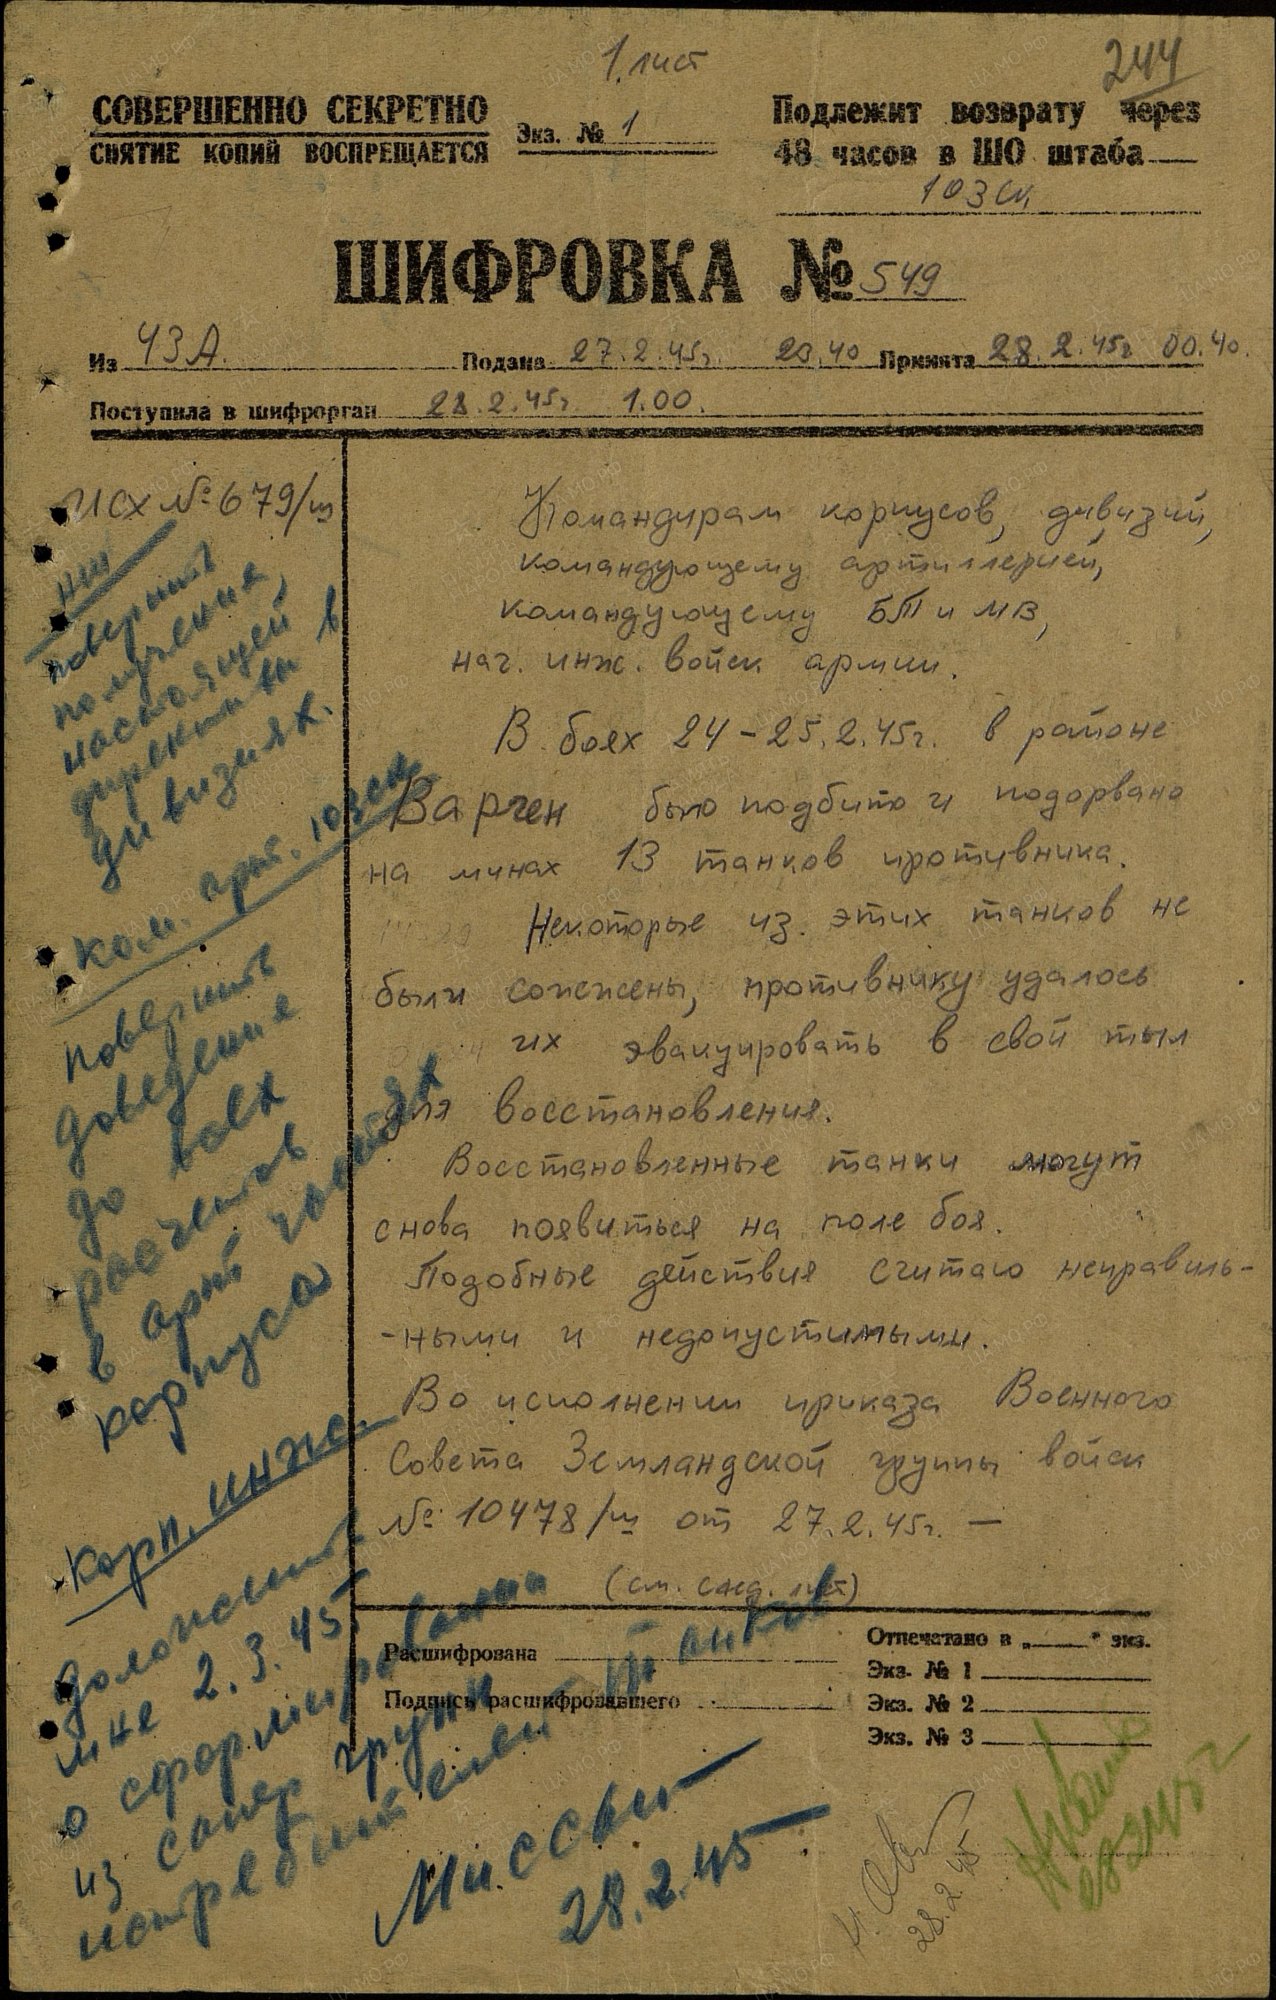 1 лист
244
СОВЕРШЕННО СЕКРЕТНО
СНЯТИЕ КОПИЙ ВОСПРЕЩАЕТСЯ
Экз. № 1
Подлежит возврату через
48 часов в ШО штаба
103 ск
ШИФРОВКА № 549
Из 43 А. Подана 27.2.45г. 20.40 Принята 28.2.45г 00.40.
Поступила в шифрорган 28.2.45г. 1.00.
Исх № 679/ш
Командирам корпусов, дивизий,
командующему артиллерией,
командующему БТ и МВ,
нач. инж. войск армии.
В боях 24-25.2.45г. в районе
Варген было подбито и подорвано
на минах 13 танков противника.
Некоторые из этих танков не
были сожжены, противнику удалось
их эвакуировать в свой тыл
для восстановления.
Восстановленные танки могут
снова появиться на поле боя.
Подобные действия считаю неправиль-
-ными и недопустимыми.
Во исполнении приказа Военного
Совета Земландской группы войск
№ 10478/ш от 27.2.45г. —
(см. след. лист)
НШ
поверить
получение
настоящей
директивы в
дивизиях.
Ком. арт. 103 ск
поверить
доведение
до всех
расчетов
в арт частях
корпуса
Корп. инж.
доложить
мне 2.3.45г
о сформировании
из сапер групп
истребителей танков
Миссан
28.2.45
Расшифрована
Подпись расшифровавшего
Отпечатано в „ “ экз.
Экз. № 1
Экз. № 2
Экз. № 3
28.2.45